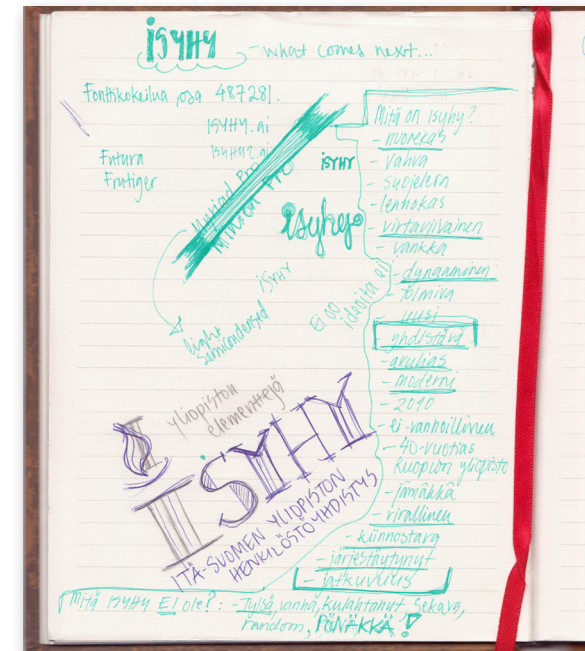 isyhy - what comes next...
Fonttikokeilua osa 487281.
ISYHY.ai
ISYHY2.ai
Futura
Frutiger
Myriad Pro
Minion Pro
isyhy
isyhy
isyHy
light
semicondensed
Ei oo
ideoita ei
Mitä on isyhy?
- nuorekas
- vahva
- suojeleva
- lennokas
- virtaviivainen
- vankka
- dynaaminen
- toimiva
- uusi
- yhdistävä
- arvokas
- moderni
- 2010
- ei-vanhoillinen
- 40-vuotias
Kuopion yliopisto
- jämäkkä
- virallinen
- kiinnostava
- järjestäytynyt
- jatkuvuus
yliopiston
elementtejä
ISYHY
ITÄ-SUOMEN YLIOPISTON
HENKILÖSTÖYHDISTYS
Mitä ISYHY EI ole?: - Tylsä, vanha, kulahtanut, sekava,
random, PÖNÄKKÄ!